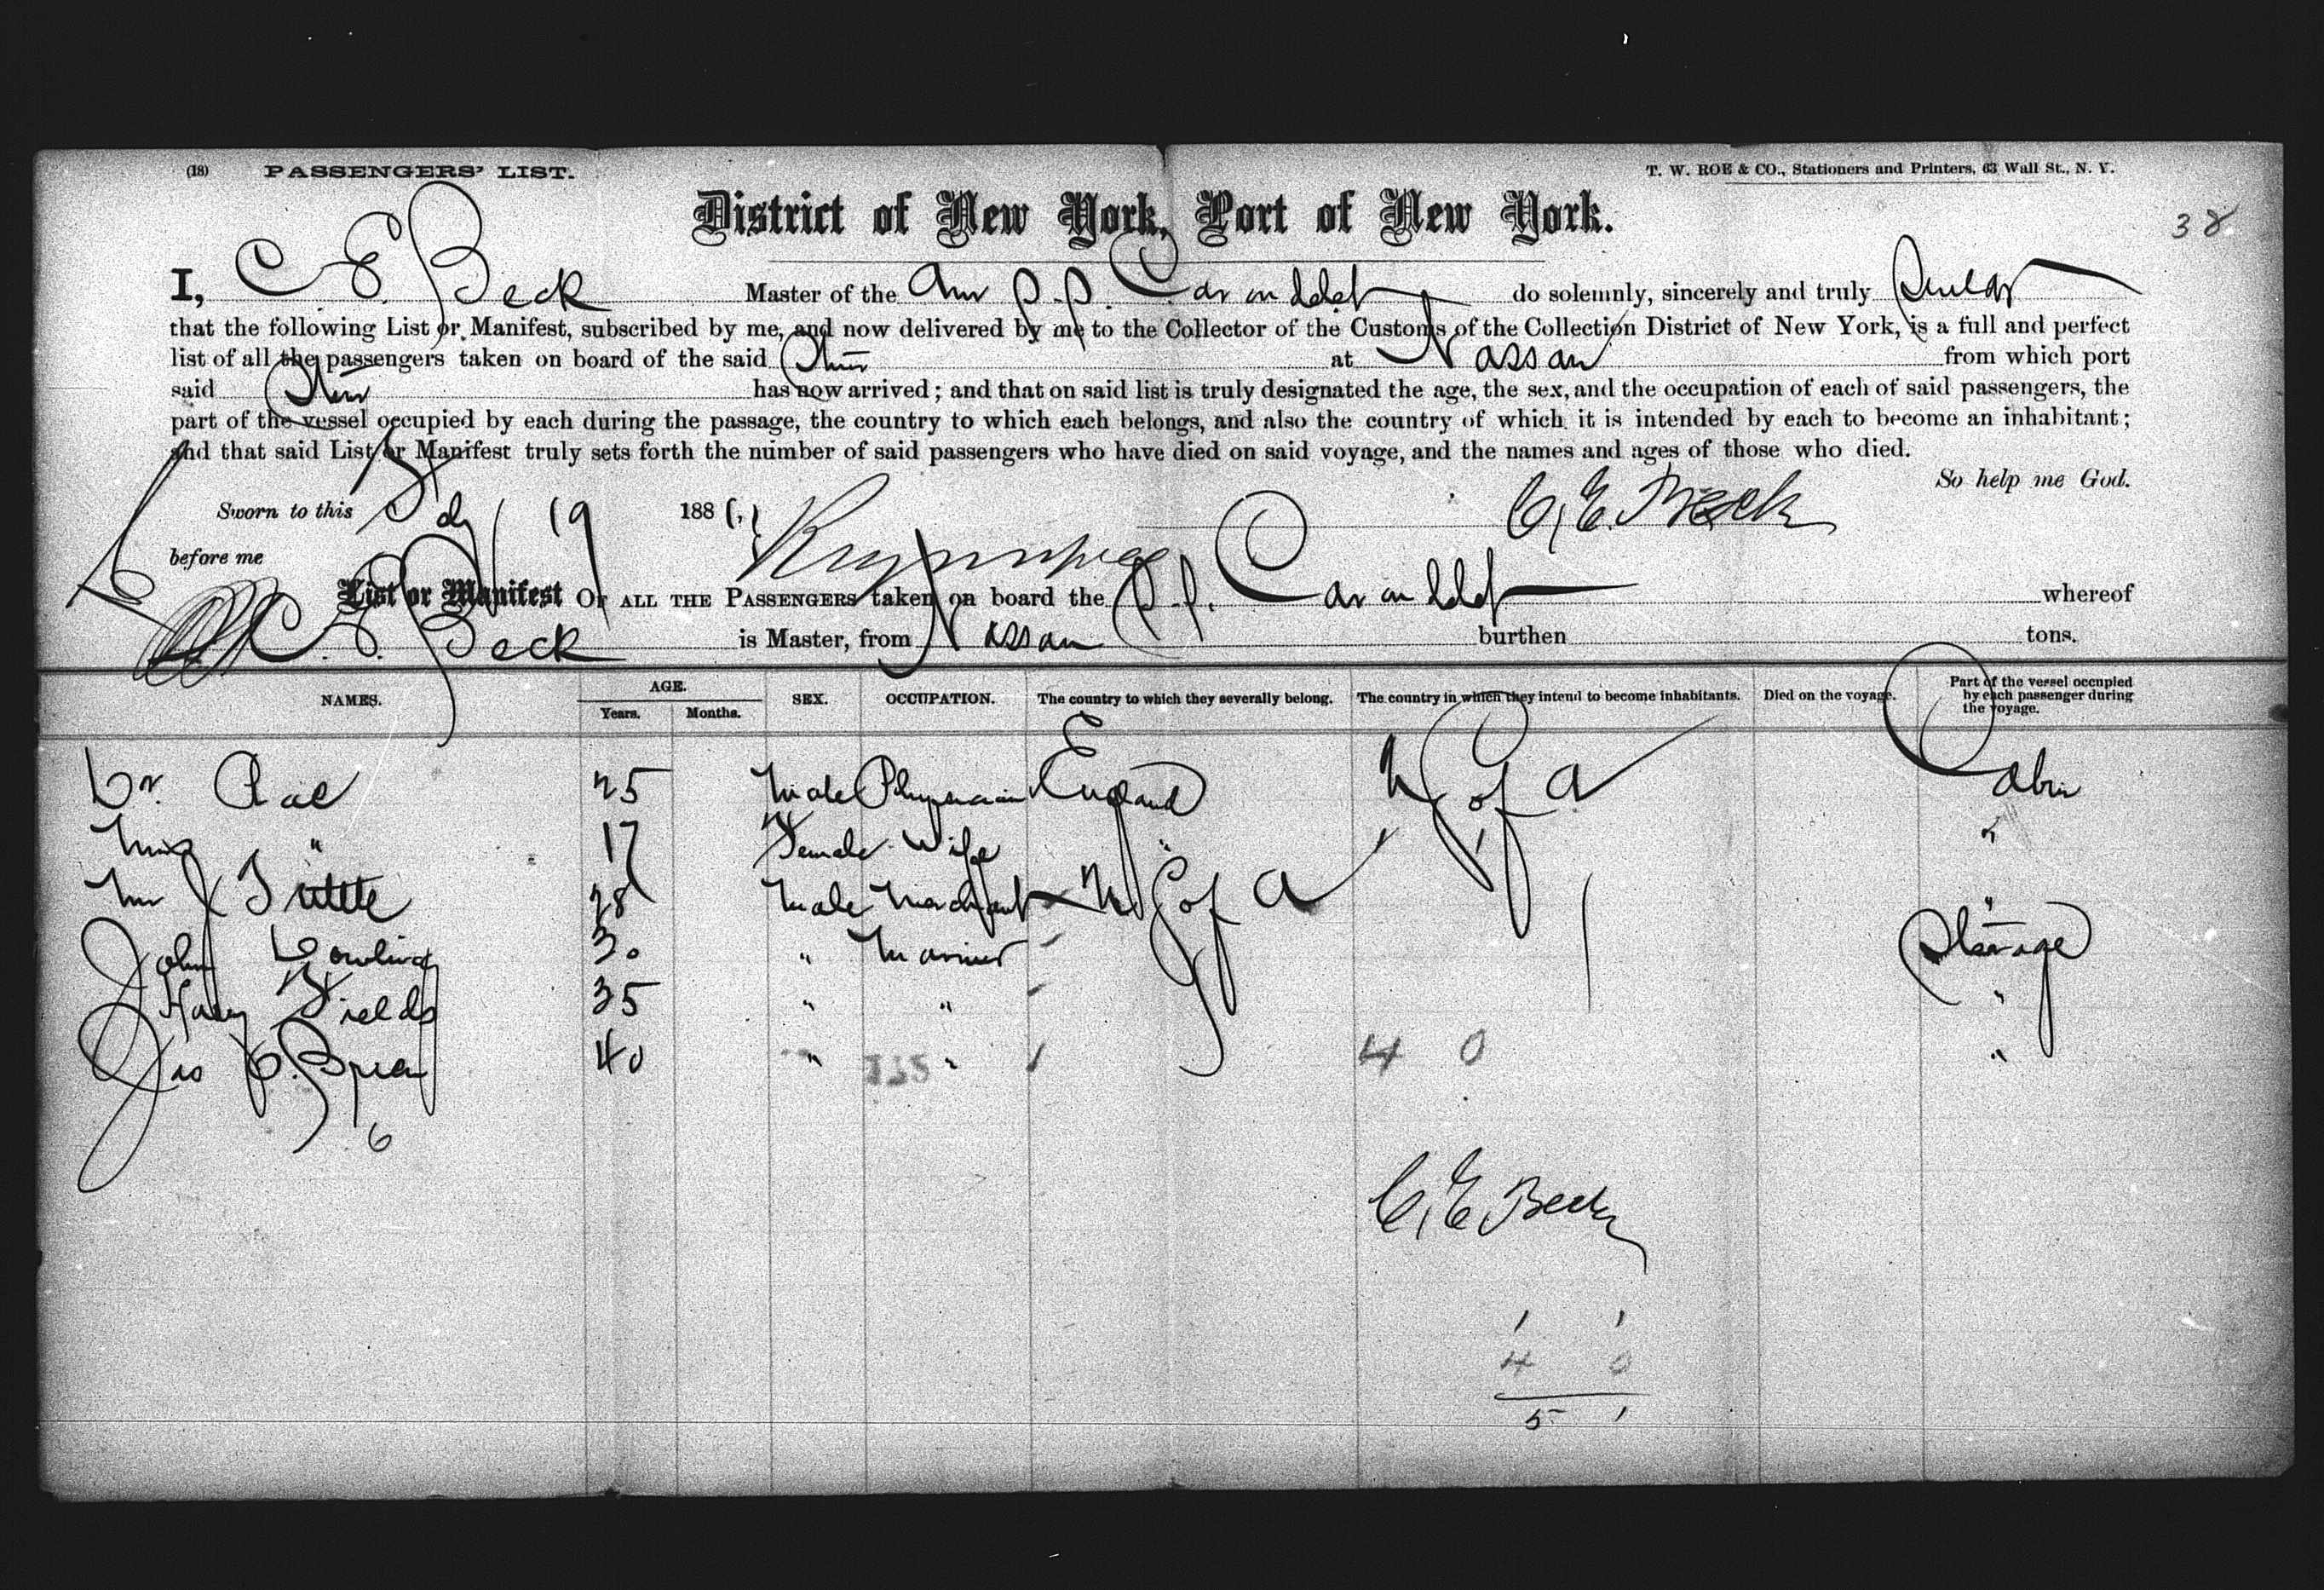 (18) PASSENGERS' LIST. T. W. ROE & CO., Stationers and Printers, 63 Wall St., N. Y.
District of New York, Port of New York.
38
I, C. E. Beck Master of the Am S.S. Carondelet do solemnly, sincerely and truly Swear
that the following List or Manifest, subscribed by me, and now delivered by me to the Collector of the Customs of the Collection District of New York, is a full and perfect
list of all the passengers taken on board of the said Str at Nassau from which port
said Str has now arrived; and that on said list is truly designated the age, the sex, and the occupation of each of said passengers, the
part of the vessel occupied by each during the passage, the country to which each belongs, and also the country of which it is intended by each to become an inhabitant;
and that said List or Manifest truly sets forth the number of said passengers who have died on said voyage, and the names and ages of those who died.
So help me God.
Sworn to this 19 188 C. E. Beck
before me
List or Manifest OF ALL THE PASSENGERS taken on board the S.S. Carondelet whereof
C. E. Beck is Master, from Nassau burthen tons.
NAMES. AGE. Years. Months. SEX. OCCUPATION. The country to which they severally belong. The country in which they intend to become inhabitants. Died on the voyage. Part of the vessel occupied by each passenger during the voyage.
Dr. Rae 25 Male Physician England U S of A Cabin
Mrs " 17 Female Wife " "
Mr J Tuttle 28 Male Merchant U S of A "
John Dowling 30 " Mariner Steerage
Harry Fields 35 " " "
Jas O. Brien 40 " " "
4 0
6
C. E. Beck
1 1
4 0
5 1